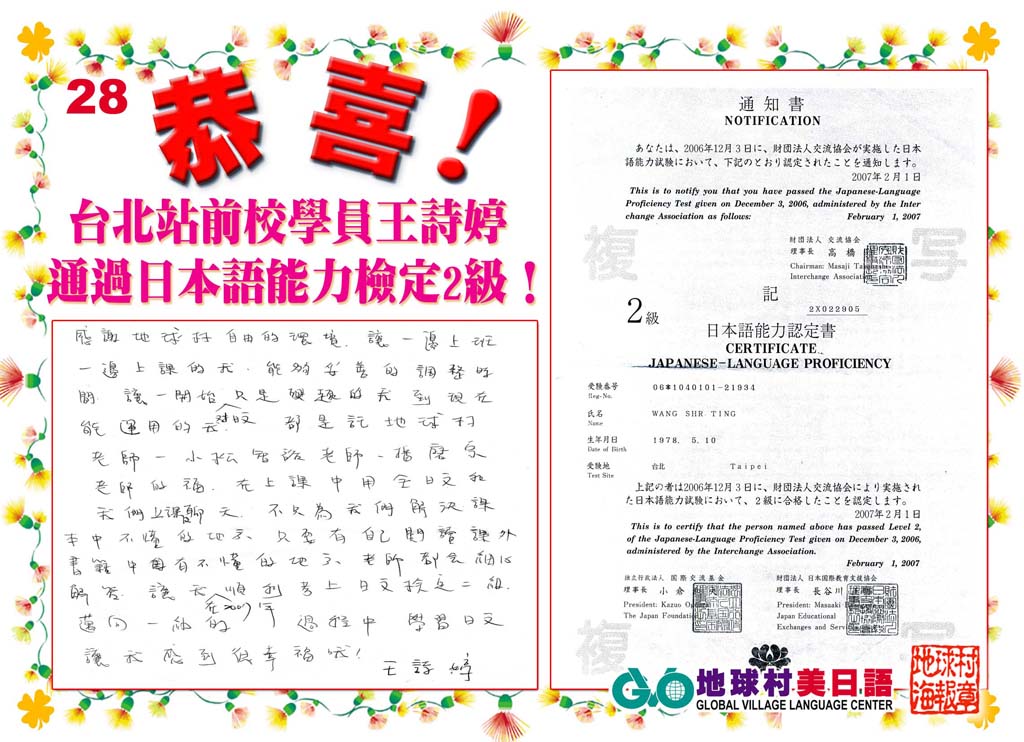 28
恭喜!
台北站前校學員王詩婷
通過日本語能力檢定2級！
感謝地球村自由的環境，讓一邊上班
一邊上課的我，能夠妥善的調整時
間，讓一開始只是興趣的我到現在
能運用的我，都是託地球村
老師－小松 老師、播磨泉
老師的福，在上課中用全日文和
我們上課聊天，不只為我們解決課
本中不懂的地方，只要有自己閱讀課外
書籍中與有不懂的地方，老師都會細心
解答，讓我順利考上日文檢定二級，
在2007年
邁向一級的過程中，學習日文
讓我感到很幸福哦!
王詩婷
通知書
NOTIFICATION
あなたは、2006年12月3日に、財団法人交流協会が実施した日本
語能力試験において、下記のとおり認定されたことを通知します。
2007年2月1日
This is to notify you that you have passed the Japanese-Language
Proficiency Test given on December 3, 2006, administered by the Inter
change Association as follows: February 1, 2007
財団法人 交流協会
理事長 高橋
Chairman: Masaji
Interchange Association
複写
記
2X022905
2級
日本語能力認定書
CERTIFICATE
JAPANESE-LANGUAGE PROFICIENCY
受験番号 06*1040101-21934
Reg-No.
氏名 WANG SHR TING
Name
生年月日 1978. 5.10
Date of Birth
受験地 台北 Taipei
Test Site
上記の者は2006年12月3日に、財団法人交流協会により実施され
た日本語能力試験において、2級に合格したことを認定します。
2007年2月1日
This is to certify that the person named above has passed Level 2,
of the Japanese-Language Proficiency Test given on December 3, 2006,
administered by the Interchange Association.
February 1, 2007
独立行政法人 国際交流基金 財団法人 日本国際教育支援協会
理事長 小倉 理事長 長谷川
President: Kazuo President: Masaaki
The Japan Foundation Japan Educational
Exchanges and
複写
GO 地球村美日語
GLOBAL VILLAGE LANGUAGE CENTER
地球村
海報章